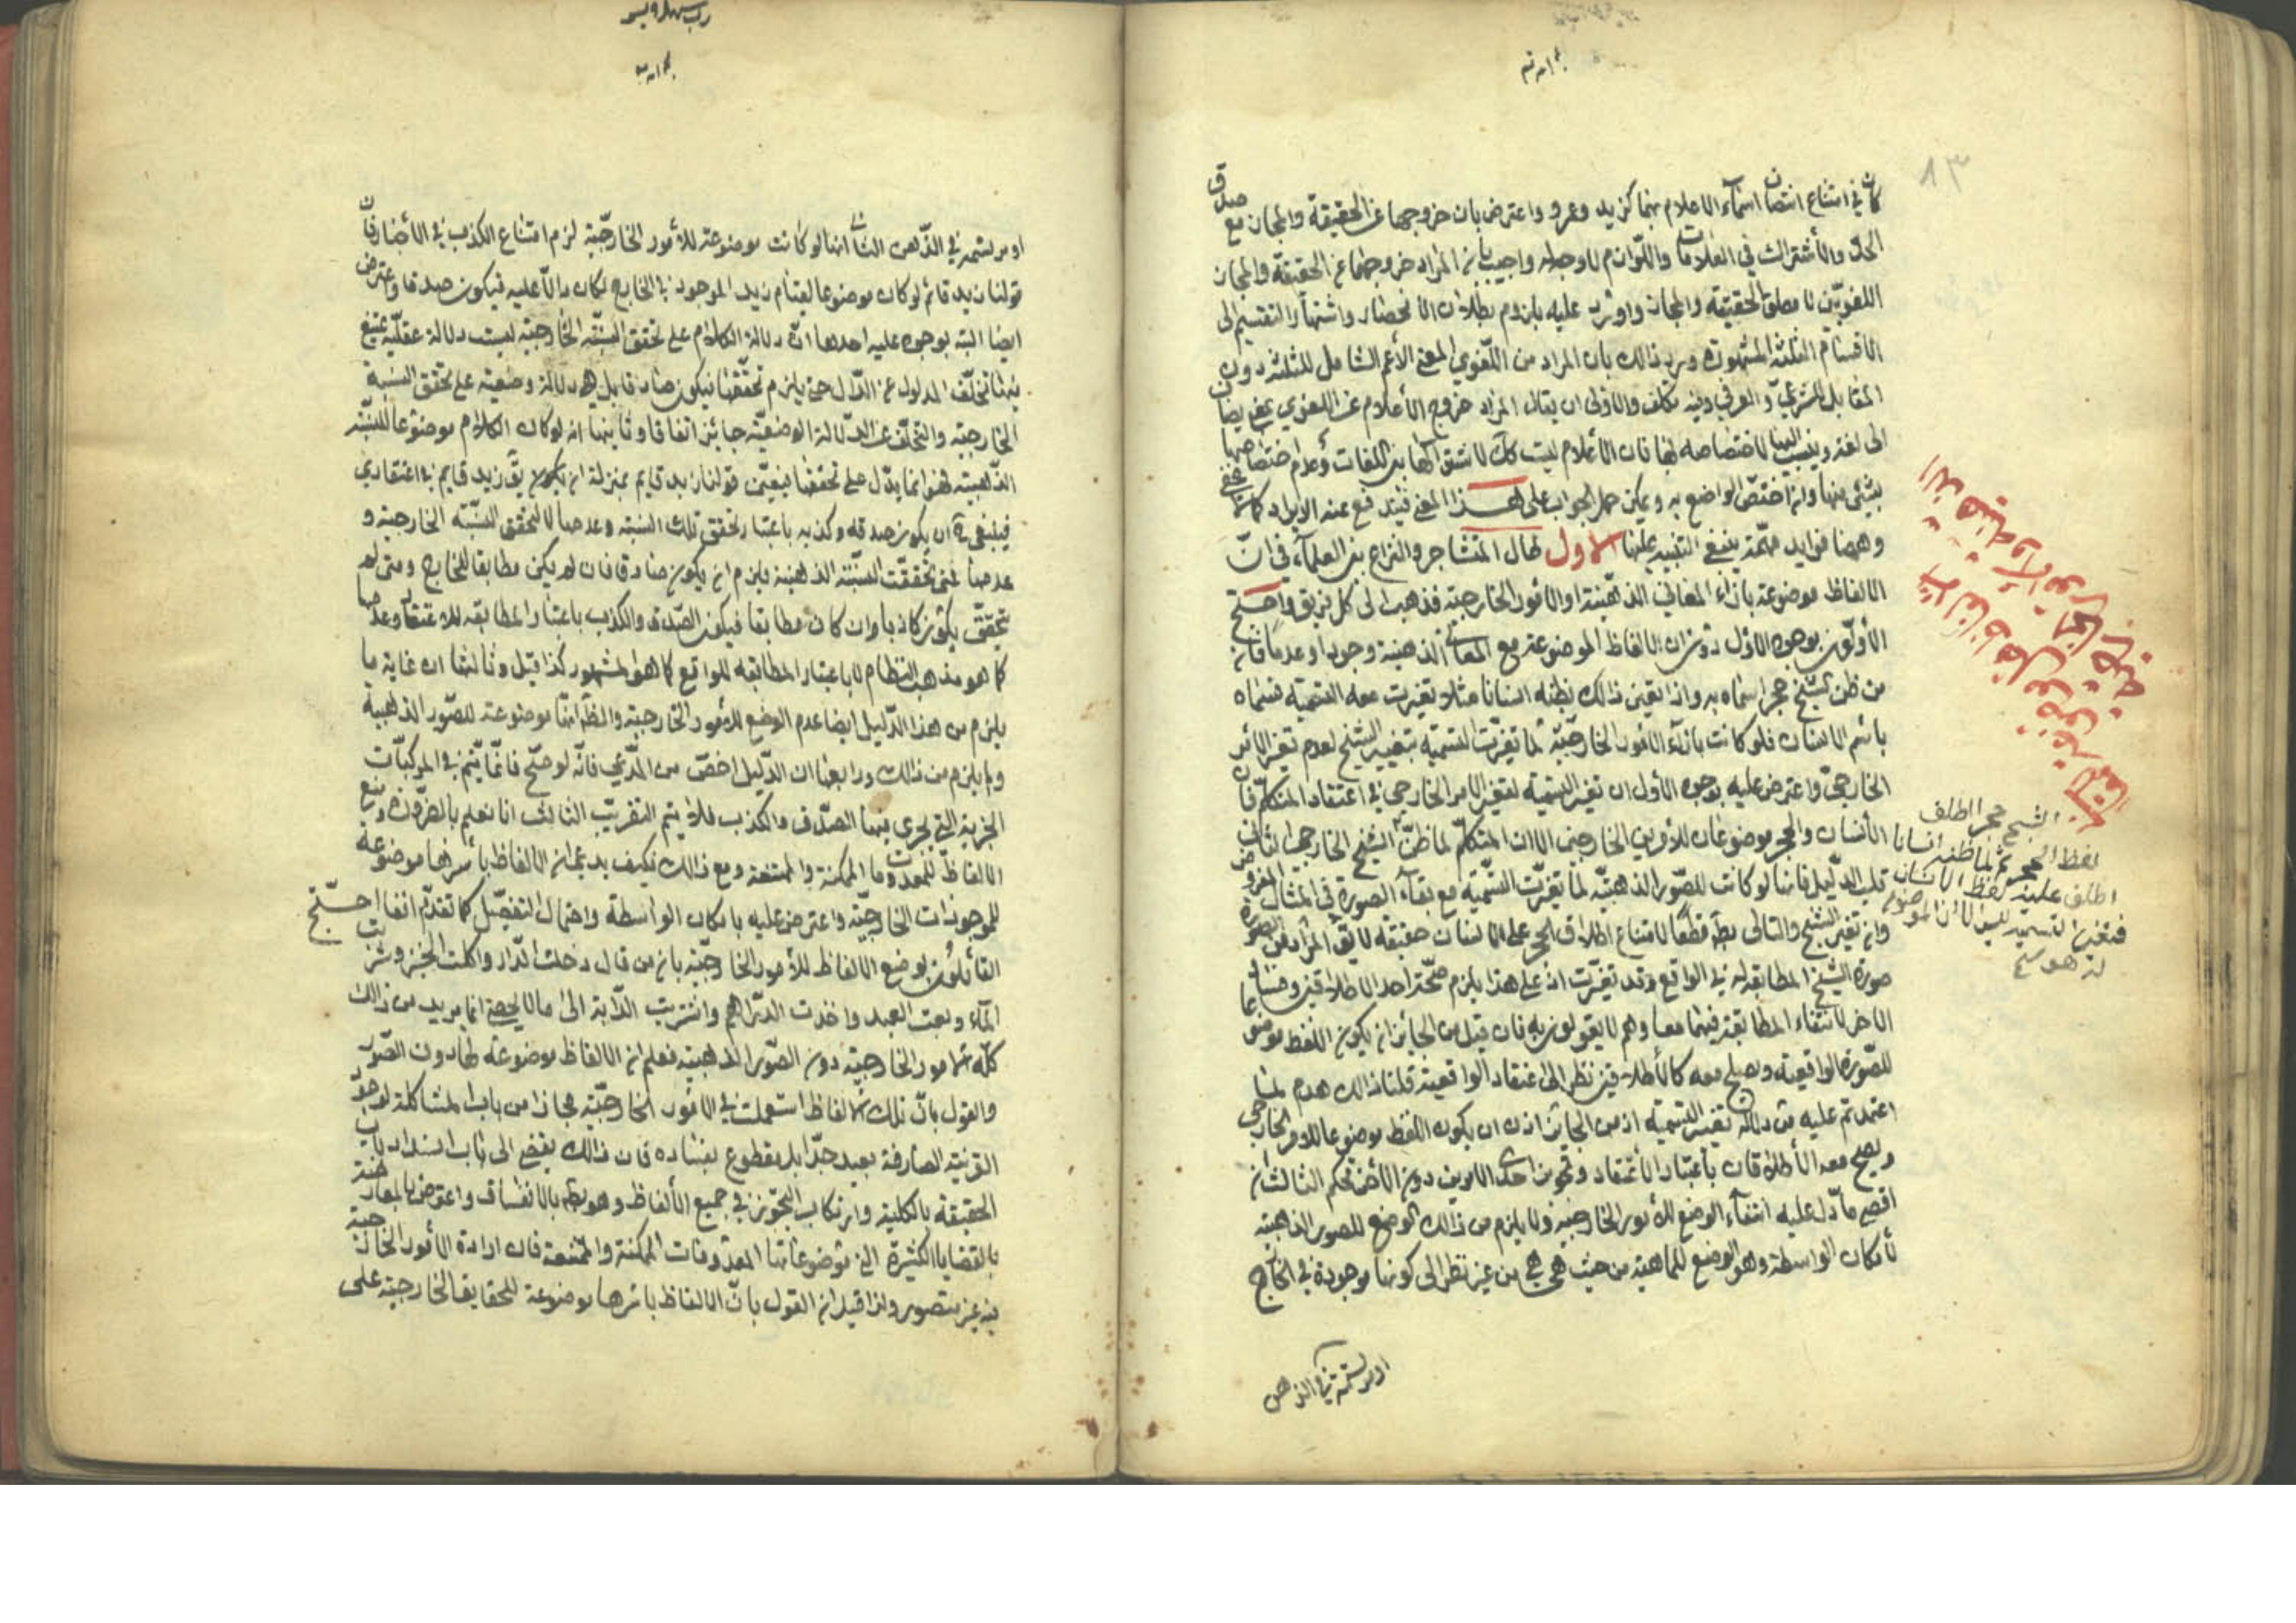 كما في امتناع اتصاف اسماء الاعلام بهما كزيد وعمرو واعترض بان خروجها عن الحقيقة والمجاز مع صدق
الحد والاشتراك في العلامات واللوازم لا وجه له واجيب بان المراد خروجهما عن الحقيقة والمجاز
اللغويين لا مطلق الحقيقة والمجاز واورد عليه بلزوم بطلان الانحصار واشتهار التقسيم الى
الاقسام الثلثة المشهورة ورد ذلك بان المراد من اللغوي المعنى الاعم الشامل للثلثة دون
المقابل للشرعي والعرفي وفيه تكلف والاولى ان يقال المراد خروج الاعلام عن اللغوي بمعنى يضاف
الى لغة وينسب اليها لاختصاصه لها فان الاعلام ليست كك لاشتراكها بين اللغات وعدم اختصاصها
بشئ منها وان اختص الواضع به ويمكن حمل الجواب على هذا المعنى فيندفع عنه الايراد كما لا يخفى
وههنا فوايد مهمة ينبغي التنبيه عليها الاول طال التشاجر والنزاع بين العلماء في ان
الالفاظ موضوعة بازاء المعاني الذهنية او الامور الخارجية فذهب الى كل فريق واحتج
الاولون بوجوه الاول دوران الالفاظ الموضوعة مع المعاني الذهنية وجودا وعدما فان
من ظن الشبح حجرا سماه به واذا تعين ذلك بظنه انسانا مثلا تغيرت معه التسمية فسماه
باسم الانسان فلو كانت بازاء الامور الخارجية لما تغيرت التسمية بتغيير الشبح لعدم تغير الامر
الخارجي واعترض عليه بوجوه الاول ان تغير التسمية لتغير الامر الخارجي في اعتقاد المتكلم فان
الانسان والحجر موضوعان للامرين الخارجين الا ان المتكلم لما ظن الشبح الخارجي الثاني
قلب الدليل فانها لو كانت للصور الذهنية لما تغيرت التسمية مع بقاء الصورة في المثال المفروض
وان تغير الشبح والتالى بط قطعا لامتناع اطلاق الحجر على الانسان حقيقة لا يق المراد من الصورة
صورة الشبح المطابقة له في الواقع وقد تغيرت اذ على هذا يلزم صحة احد الاطلاقين وفساد
الاخر لانتفاء المطابقة فيهما معا وهم لا يقولون به فان قيل من الجائز ان يكون اللفظ موضوعا
للصورة الواقعية ويصلح معه كالاطلاقين نظرا الى اعتقاد الواقعية قلنا ذلك هدم لما
اعتمدتم عليه من دلالة تغير التسمية اذ من الجائز اذن ان يكون اللفظ موضوعا للامر الخارجي
ويصح معه الاطلاقان باعتبار الاعتقاد وتجويز احد الامرين دون الاخر تحكم الثالث ان
اقصى ما دل عليه انتفاء الوضع للامور الخارجية ولا يلزم من ذلك الوضع للصور الذهنية
لامكان الواسطة وهو الوضع للماهية من حيث هي هي من غير نظر الى كونها موجودة في الخارج
او مرتسمة في الذهن
الشبح حجرا اطلق
لفظ الحجر ثم لما ظنه انسانا
اطلق عليه لفظ الانسان
فتغير التسمية ليس الا ان الموضوع
له هو
او مرتسمة في الذهن الثاني انها لو كانت موضوعة للامور الخارجية لزم امتناع الكذب في الاخبار فان
قولنا زيد قائم لو كان موضوعا لقيام زيد الموجود في الخارج لكان دالا عليه فيكون صدقا واعترض
ايضا البتة بوجوه عليه احدها ان دلالة الكلام على تحقق النسبة الخارجية ليست دلالة عقلية يمتنع
فيها تخلف المدلول عن الدال حتى يلزم تحققها فيكون صادقا بل هي دلالة وضعية على تحقق النسبة
الخارجية والتخلف عن الدلالة الوضعية جائز اتفاقا وثانيها انه لو كان الكلام موضوعا للنسبة
الذهنية فهو انما يدل على تحققها فيعين قولنا زيد قايم بمنزلة ان يكون يق زيد قايم في اعتقادي
فينبغي ح ان يكون صدقه وكذبه باعتبار تحقق تلك النسبة وعدمها لا لتحقق النسبة الخارجية و
عدمها فمتى تحققت النسبة الذهنية يلزم ان يكون صادقا فان لم يكن مطابقا للخارج ومتى لم
يتحقق يكون كاذبا وان كان مطابقا فيكون الصدق والكذب باعتبار المطابقة للاعتقاد وعدمها
كما هو مذهب النظام لا باعتبار المطابقة للواقع كما هو المشهور كذا قيل وثالثها ان غاية ما
يلزم من هذا الدليل ايضا عدم الوضع للامور الخارجية والمط انها موضوعة للصور الذهنية
ولم يلزم من ذلك ورابعها ان الدليل اخص من المدعى فانه لو صح فانما يتم في المركبات
الخبرية التي يجرى فيها الصدق والكذب فلا يتم التقريب الثالث انا نعلم بالضرورة وضع
الالفاظ للمعدومات الممكنة والممتنعة ومع ذلك فكيف يدعى ان الالفاظ باسرها موضوعة
للموجودات الخارجية واعترض عليه بامكان الواسطة واحتمال التفصيل كما تقدم انفا احتج
القائلون بوضع الالفاظ للامور الخارجية بان من قال دخلت الدار واكلت الخبز وشربت
الماء وبعت العبد واخذت الدراهم واشتريت الدابة الى ما لا يحصى انما يريد من ذلك
كله الامور الخارجية دون الصور الذهنية فعلم ان الالفاظ موضوعة لها دون الصور
والقول بان تلك الالفاظ استعملت في الامور الخارجية مجازا من باب المشاكلة لوجود
القرينة الصارفة بعيد جدا بل مقطوع بفساده فان ذلك يفضى الى باب انسداد باب
الحقيقة بالكلية وارتكاب التجوز في جميع الالفاظ وهو بط بالاتفاق واعترض بالمعارضة
بالقضايا الكثيرة التي موضوعاتها المعدومات الممكنة والممتنعة فان ارادة الامور الخارجية
فيه غير متصور ولذا قيل ان القول بان الالفاظ باسرها موضوعة للحقايق الخارجية على